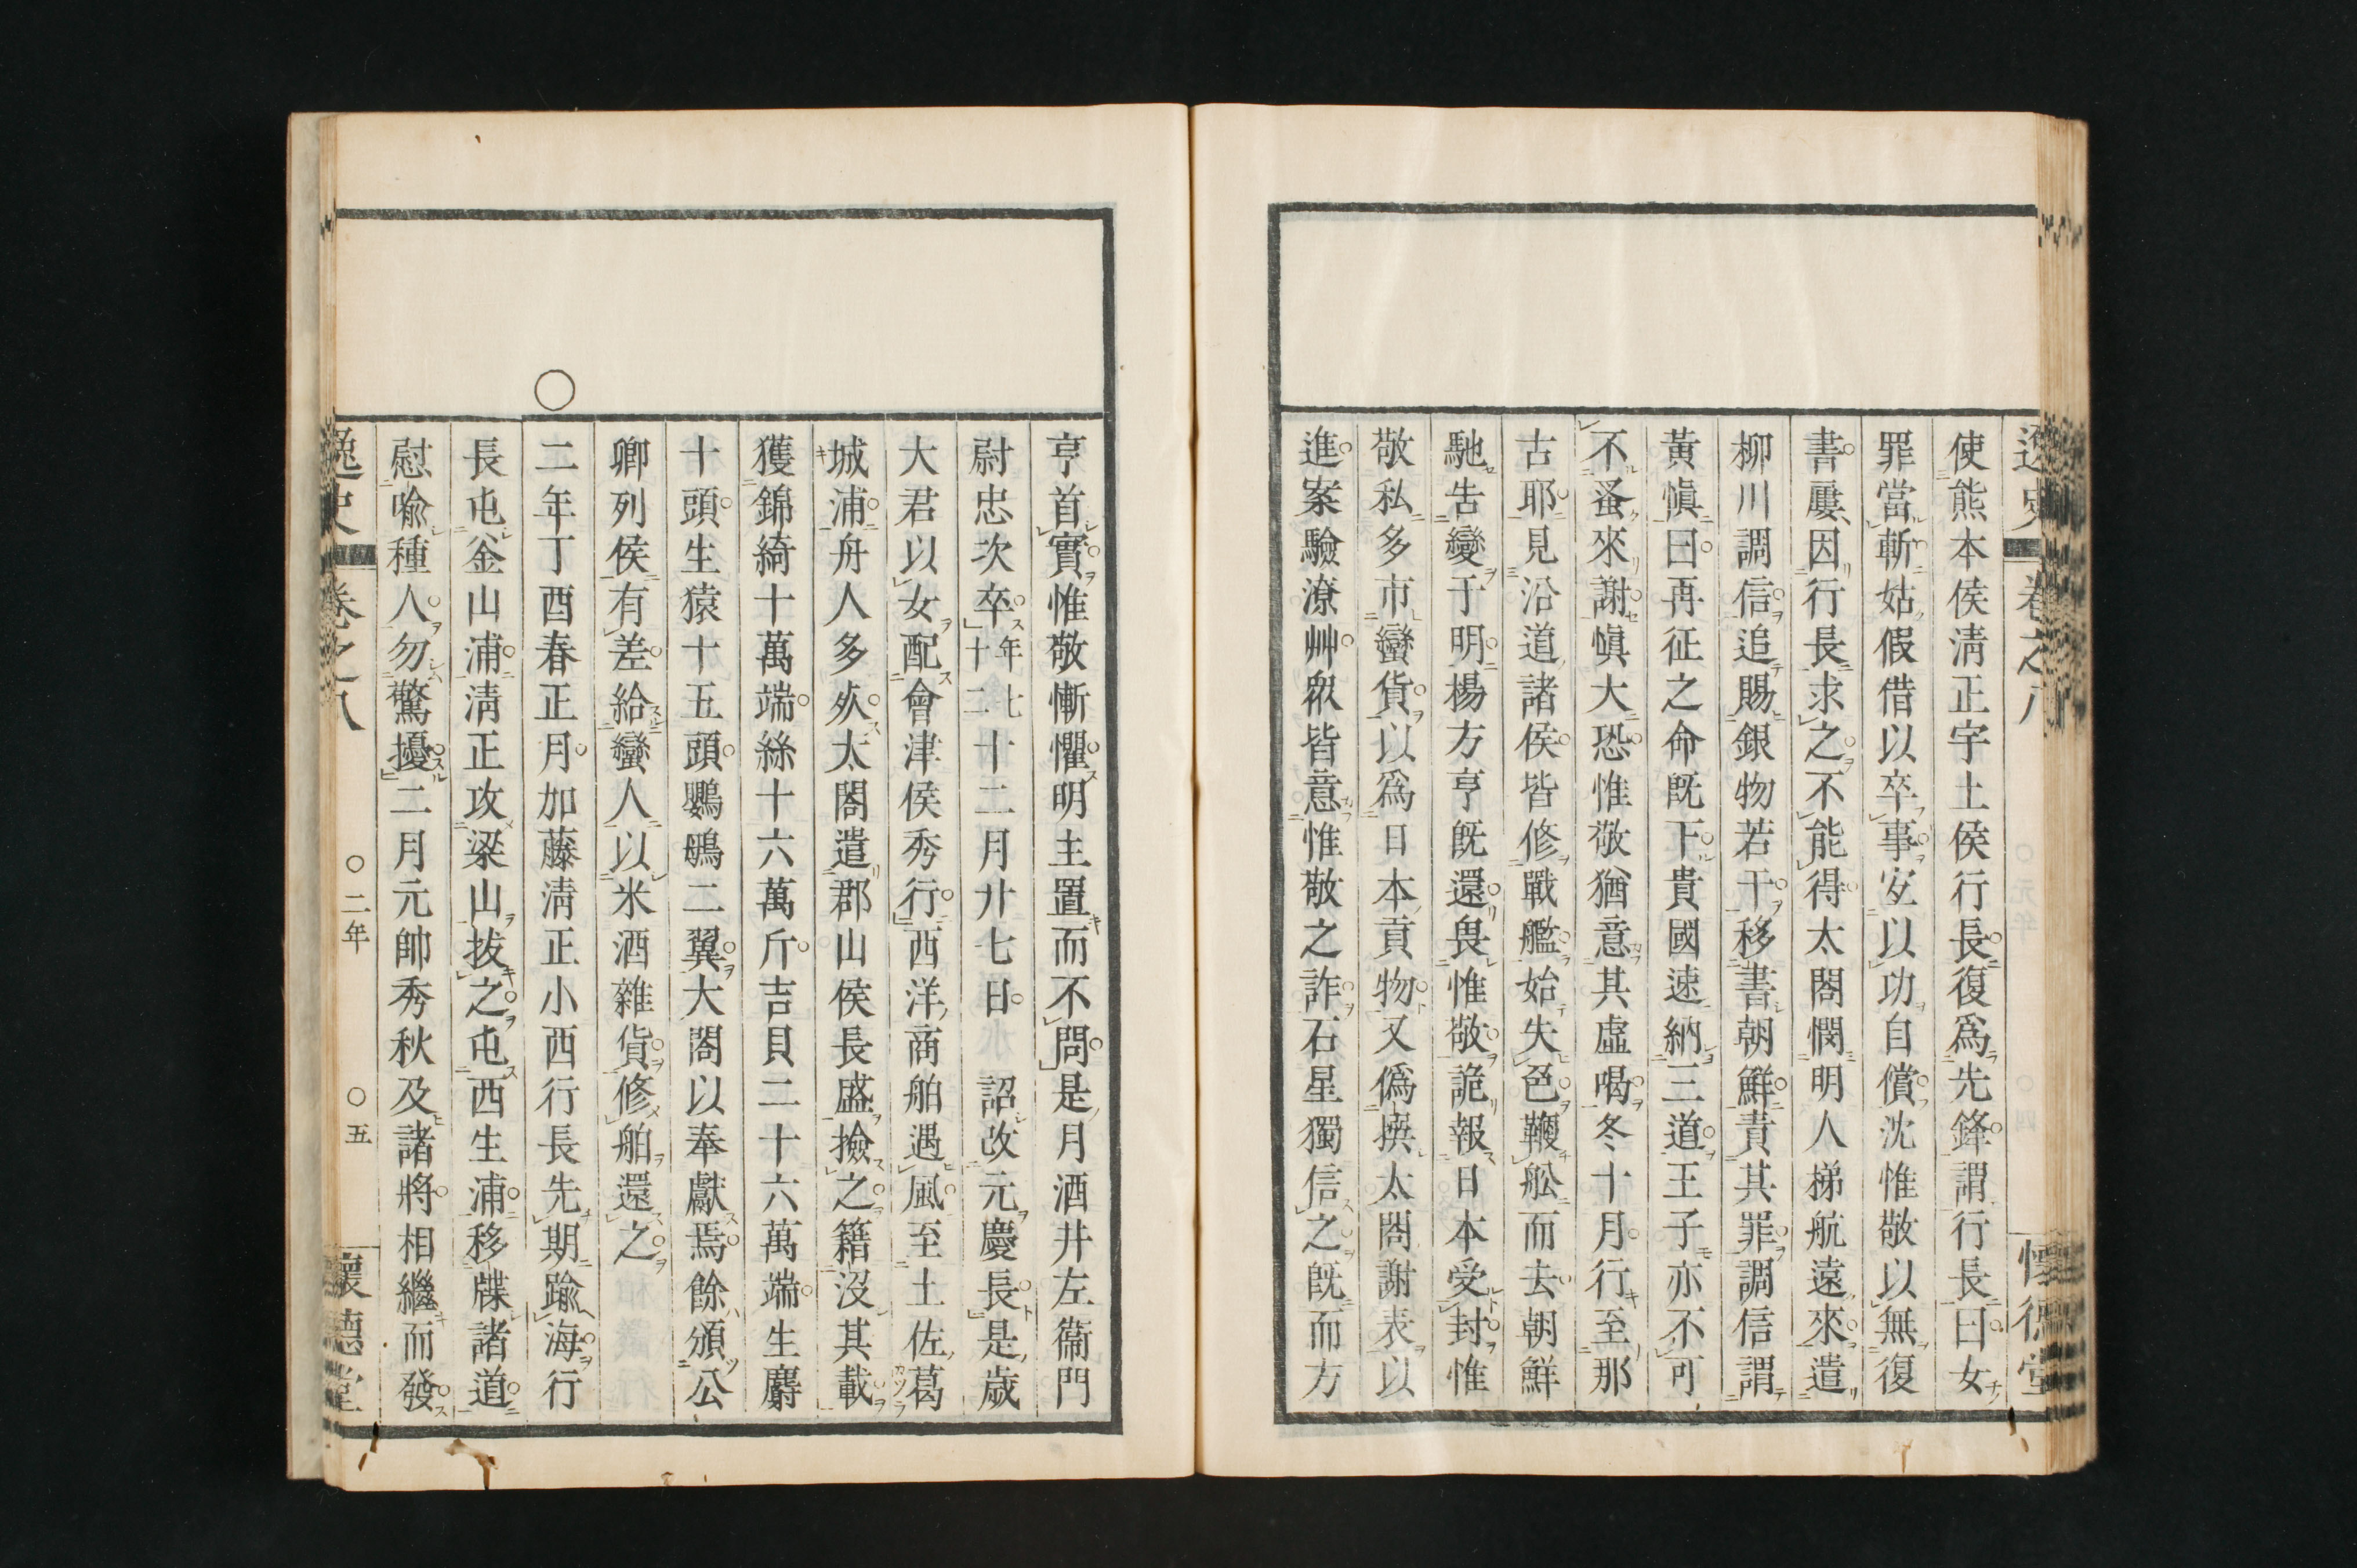 逸史 卷之八 懷德堂
使熊本侯淸正宇土侯行長復爲先鋒謂行長曰女
罪當斬姑假借以卒事安以功自償沈惟敬以無復
書屢因行長求之不能得太閤憫明人梯航遠來遣
柳川調信追賜銀物若干移書朝鮮責其罪調信謂
黃愼曰再征之命旣下貴國速納三道王子亦不可
不蚤來謝愼大恐惟敬猶意其虛喝冬十月行至那
古耶見沿道諸侯皆修戰艦始失色鞭舩而去朝鮮
馳吿變于明楊方亨旣還畏惟敬詭報日本受封惟
敬私多市蠻貨以爲日本貢物又僞撰太閤謝表以
進案驗潦艸衆皆意惟敬之詐石星獨信之旣而方
亨首實惟敬慚懼明主置而不問是月酒井左衞門
尉忠次卒年七十二十二月廿七日 詔改元慶長是歲
大君以女配會津侯秀行西洋商舶遇風至土佐葛
城浦舟人多死太閤遣郡山侯長盛撿之籍沒其載
獲錦綺十萬端絲十六萬斤吉貝二十六萬端生麝
十頭生猿十五頭鸚鵡二翼大閤以奉獻焉餘頒公
卿列侯有差給蠻人以米酒雜貨修舶還之
○
二年丁酉春正月加藤淸正小西行長先期踰海行
長屯金山浦淸正攻梁山拔之屯西生浦移牒諸道
慰喩種人勿驚擾二月元帥秀秋及諸將相繼而發
逸史 卷之八 ○二年 ○五 懷德堂